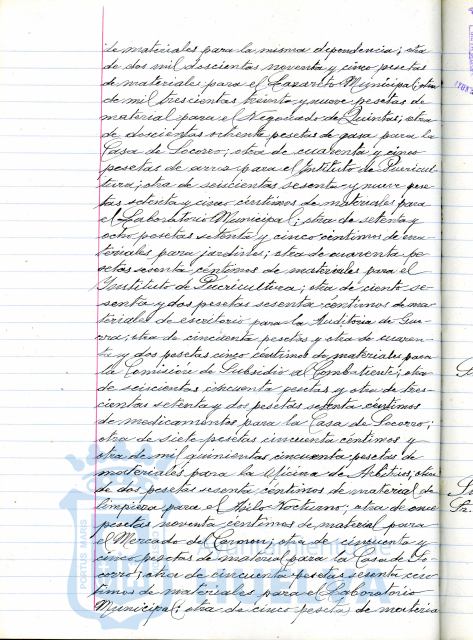 de materiales para la misma dependencia; otra
de dos mil doscientas noventa y cinco pesetas
de materiales para el Lazareto Municipal; otra
de mil trescientas treinta y nueve pesetas de
material para el Negociado de Quintas; otra
de doscientas ochenta pesetas de gasa para la
Casa de Socorro; otra de cuarenta y cinco
pesetas de arroz para el Instituto de Puericul-
tura; otra de seiscientas sesenta y nueve pese
tas setenta y cinco céntimos de materiales para
el Laboratorio Municipal; otra de setenta y
ocho pesetas setenta y cinco céntimos de ma
teriales para jardines; otra de cuarenta pe
setas sesenta céntimos de materiales para el
Instituto de Puericultura; otra de ciento se-
senta y dos pesetas sesenta céntimos de ma
teriales de escritorio para la Auditoria de Gue-
rra; otra de cincuenta pesetas y otra de cuaren-
ta y dos pesetas cinco céntimos de materiales para
la Comisión de Subsidio al Combatiente; otra
de seiscientas cincuenta pesetas y otra de tres-
cientas setenta y dos pesetas setenta céntimos
de medicamentos para la Casa de Socorro;
otra de siete pesetas cincuenta céntimos y
otra de mil quinientas cincuenta pesetas de
materiales para la Oficina de Arbitrios; otra
de dos pesetas sesenta céntimos de material de
limpieza para el Asilo Nocturno; otra de once
pesetas noventa céntimos de material para
el Mercado del Carmen; otra de cincuenta y
cinco pesetas de material para la Casa de So
corro; otra de cincuenta pesetas sesenta cén
timos de materiales para el Laboratorio
Municipal; otra de cinco pesetas de materia
PORTUS MARIS